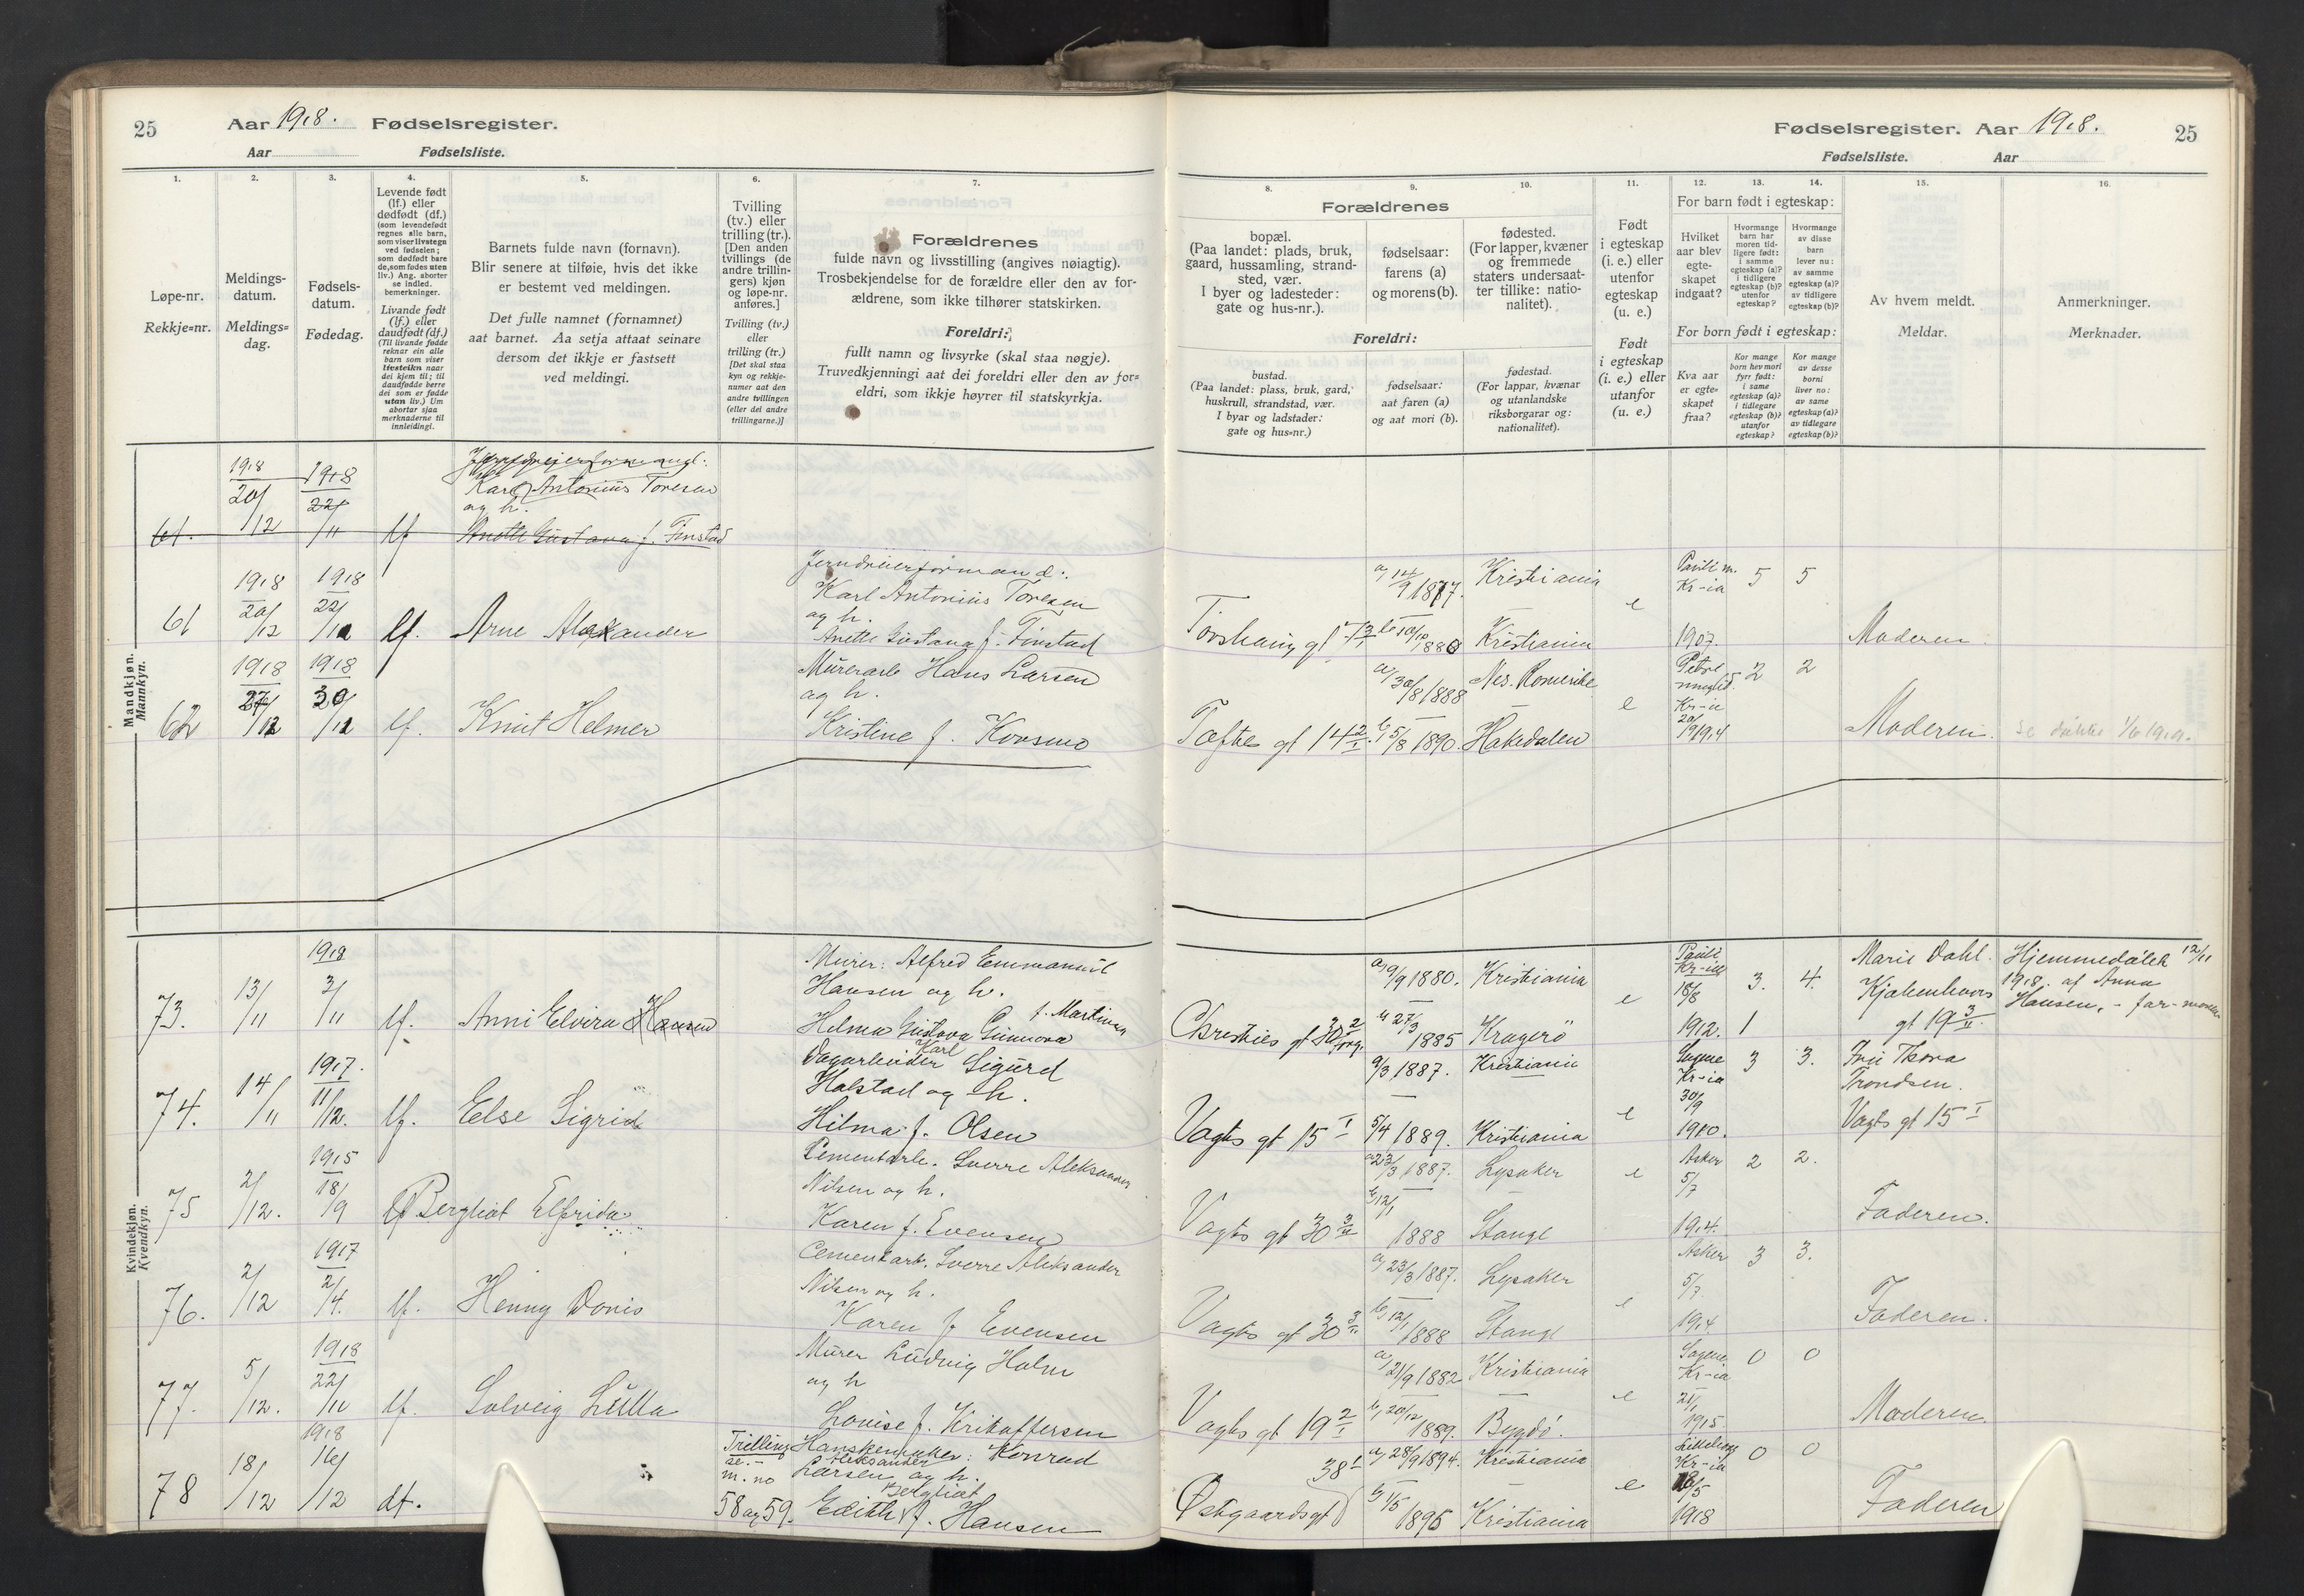 25
Aar 1918. Fødselsregister.
Aar
Fødselsliste.
1.
Løpe-nr.
Rekkje=nr.
2.
Meldings-
datum.
Meldings=
dag.
3.
Fødsels-
datum.
Fødedag.
4.
Levende født
(lf.) eller
dødfødt (df.)
(som levendefødt
regnes alle barn,
som viser livstegn
ved fødselen;
som dødfødt bare
de, som fødes uten
liv.) Ang. aborter
se indled.
bemerkninger.
Livande født
(lf.) eller
daudfødt (df.)
(Til livande fødde
reknar ein alle
barn som viser
livsteikn naar
dei kjem til; til
daudfødde berre
dei som er fødde
utan liv.) Um
abortar sjaa
merknaderne til
innleidingi.
5.
Barnets fulde navn (fornavn).
Blir senere at tilføie, hvis det ikke
er bestemt ved meldingen.
Det fulle namnet (fornamnet)
aat barnet. Aa setja attaat seinare
dersom det ikkje er fastsett
ved meldingi.
6.
Tvilling
(tv.) eller
trilling (tr.).
[Den anden
tvillings (de
andre trillin-
gers) kjøn
og løpe-nr.
anføres.]
Tvilling (tv.)
eller
trilling (tr.)
[Det skal staa
kyn og rekkje-
numer aat den
andre tvillingen
(eller dei andre
trillingarne.)]
7.
Forældrenes
fulde navn og livsstilling (angives nøiagtig).
Trosbekjendelse for de forældre eller den av for-
ældrene, som ikke tilhører statskirken.
Foreldri:
fullt namn og livsyrke (skal staa nøgje).
Truvedkjenningi aat dei foreldri eller den av for=
eldri, som ikkje høyrer til statskyrkja.
Fødselsregister. Aar 1918.
25
Fødselsliste. Aar
8.
Forældrenes
bopæl.
(Paa landet: plads, bruk,
gaard, hussamling, strand-
sted, vær.
I byer og ladesteder:
gate og hus-nr.).
Foreldri:
bustad.
(Paa landet: plass, bruk, gard,
huskrull, strandstad, vær.
I byar og ladstader:
gate og hus=nr.)
9.
fødselsaar:
farens (a)
og morens (b).
fødselsaar:
aat faren (a)
og aat mori (b).
10.
fødested.
(For lapper, kvæner
og fremmede
staters undersaat-
ter tillike: natio-
nalitet).
fødestad.
(For lappar, kvænar
og utanlandske
riksborgarar og:
nationalitet).
11.
Født
i egteskap
(i. e.) eller
utenfor
egteskap
(u. e.)
Født
i egteskap
(i. e.) eller
utanfor
(u. e.)
12.
For barn født i egteskap:
Hvilket
aar blev
egte-
skapet
indgaat?
For born født i egteskap:
Kva aar
er egte-
skapet
fraa?
13.
Hvormange
barn har
moren tid-
ligere født:
i samme
egteskap (a)?
i tidligere
egteskap (b)?
utenfor
egteskap?
Kor mange
born hev mori
fyrr født:
i same
egteskap (a)?
i tidlegare
egteskap (b)?
utanfor
egteskap?
14.
Hvormange
av disse
barn
lever nu:
av samme
egteskap (a)?
av tidligere
egteskap (b)?
Kor mange
av desse
borni
liver no:
av same
egteskap (a)?
av tidlegare
egteskap (b)?
15.
Av hvem meldt.
Meldar.
16.
Anmerkninger.
Merknader.
Mandkjøn.
Mannkyn.
61. 1918 20/12 1918 22/11 lf
Karl Antonius Toresen
og h.
Anette Gustava f. Finstad
61 1918 20/12 1918 22/11 lf. Arne Alexander
Jerndreierformand:
Karl Antonius Toresen
og h.
Anette Gustava f. Finstad
a, 14/9 1877. Kristiania
b 10/10 1880 Kristiania
e
Kr-ia
1907.
5 5
Moderen.
62 1918 27/12 1918 30/11 lf. Knut Helmer
Murerarb Hans Larsen
og h.
Kristine f. Korsmo
Toftes gt 14 2/I.
a, 30/8 1888 Nes. Romerike
b, 5/8 1890. Hakedalen
e
Kr-ia
20/9 1914
2 2
Moderen.
Kvindekjøn.
Kvendkyn.
73. 13/11 1918 3/11 lf. Anni Elvira Hansen
Murer: Alfred Emmanuel
Hansen og h.
Helma Gustava Gunnora f. Martinsen
a, 9/9 1880. Kristiania
b 27/3 1885 Kragerö
e
Pauli
Kr-ia
18/8
1912.
3. 1
4.
Marie Dahl.
gt 19 3/II.
Hjemmedöbt 12/11
1918. af Anna
Hansen, - far-moder
74. 14/11 1917. 11/12. lf. Else Sigrid
Dagarbeider Karl Sigurd
Halstad og h.
Hilma f. Olsen
Vogts gt 15 I
9/3 1887. Kristiania
5/4 1889. Kristiania
e
Sagene
Kr-ia
30/9
1910.
3 3.
Fru Thora
Trondsen.
Vogts gt 15 I
75 2/12. 1915 18/9 lf Bergliot Elfrida
Cementarb. Sverre Aleksander
Nilsen og h.
Karen f. Evensen
Vogts gt 30 3/II
a 23/3 1887. Lysaker
b, 12/1 1888 Stange
e
Asker
5/7
1914.
2 2.
Faderen.
76. 2/12 1917 2/4. lf. Henny Doris
Cementarb. Sverre Aleksander
Nilsen og h.
Karen f Evensen
Vogts gt 30 3/II
a, 23/3 1887. Lysaker
b, 12/1 1888 Stange
e
Asker
5/7.
1914.
3 3.
Faderen.
77. 5/12. 1918 22/11 lf. Solveig Lulla
Murer Ludvig Holm
og h
Lovise f. Kristoffersen
Vogts gt 19 2/I
a, 21/9 1882 Kristiania
b, 20/12 1889. Bygdö.
e
Sagene
Kr-ia
21/1
1915
0 0
Moderen.
78 18/12 1918 16/12 df.
Trilling
se.-
m. no
58 og 59.
Hanskemaker: Konrad
Aleksander
Larsen og h.
Edith Bergliot f. Hansen
Østgaardsgt 38 I
a, 28/9 1894. Kristiania
b, 1/5 1895 Kristiania
e
Lilleborg
Kr-ia
18/5
1918
0 0
Faderen